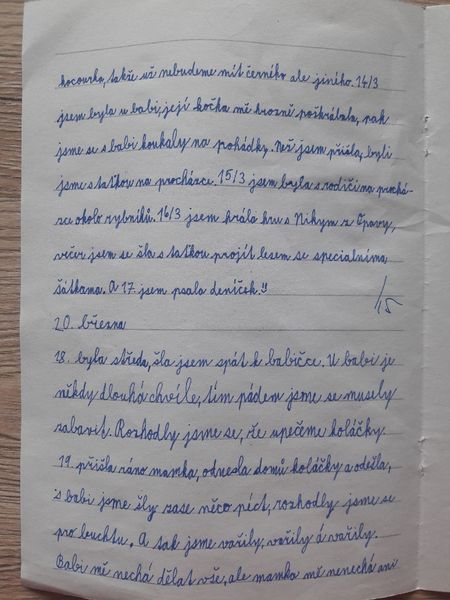 kocourka, takže už nebudeme mít černého ale jiného. 14/3
jsem byla u babi, její kočka mě hrozně poškrábala, pak
jsme se s babi koukaly na pohádky. Než jsem přišla, byli
jsme s taťkou na procházce. 15/3 jsem byla s rodiči na prochá-
zce okolo rybníků. 16/3 jsem hrála hru s Nikym z Opavy,
večer jsem se šla s taťkou projít lesem se specialníma
šátkama. A 17. jsem psala deníček.
/15
20. března
18. byla středa, šla jsem spát k babičce. U babi je
někdy dlouhá chvíle, tím pádem jsme se musely
zabavit. Rozhodly jsme se, že upečeme koláčky.
19. přišla ráno mamka, odnesla domů koláčky a odešla,
s babi jsme šly zase něco péct, rozhodly jsme se
pro buchtu. A tak jsme vařily, vařily a vařily.
Babi mě nechá dělat vše, ale mamka mě nenechá ani